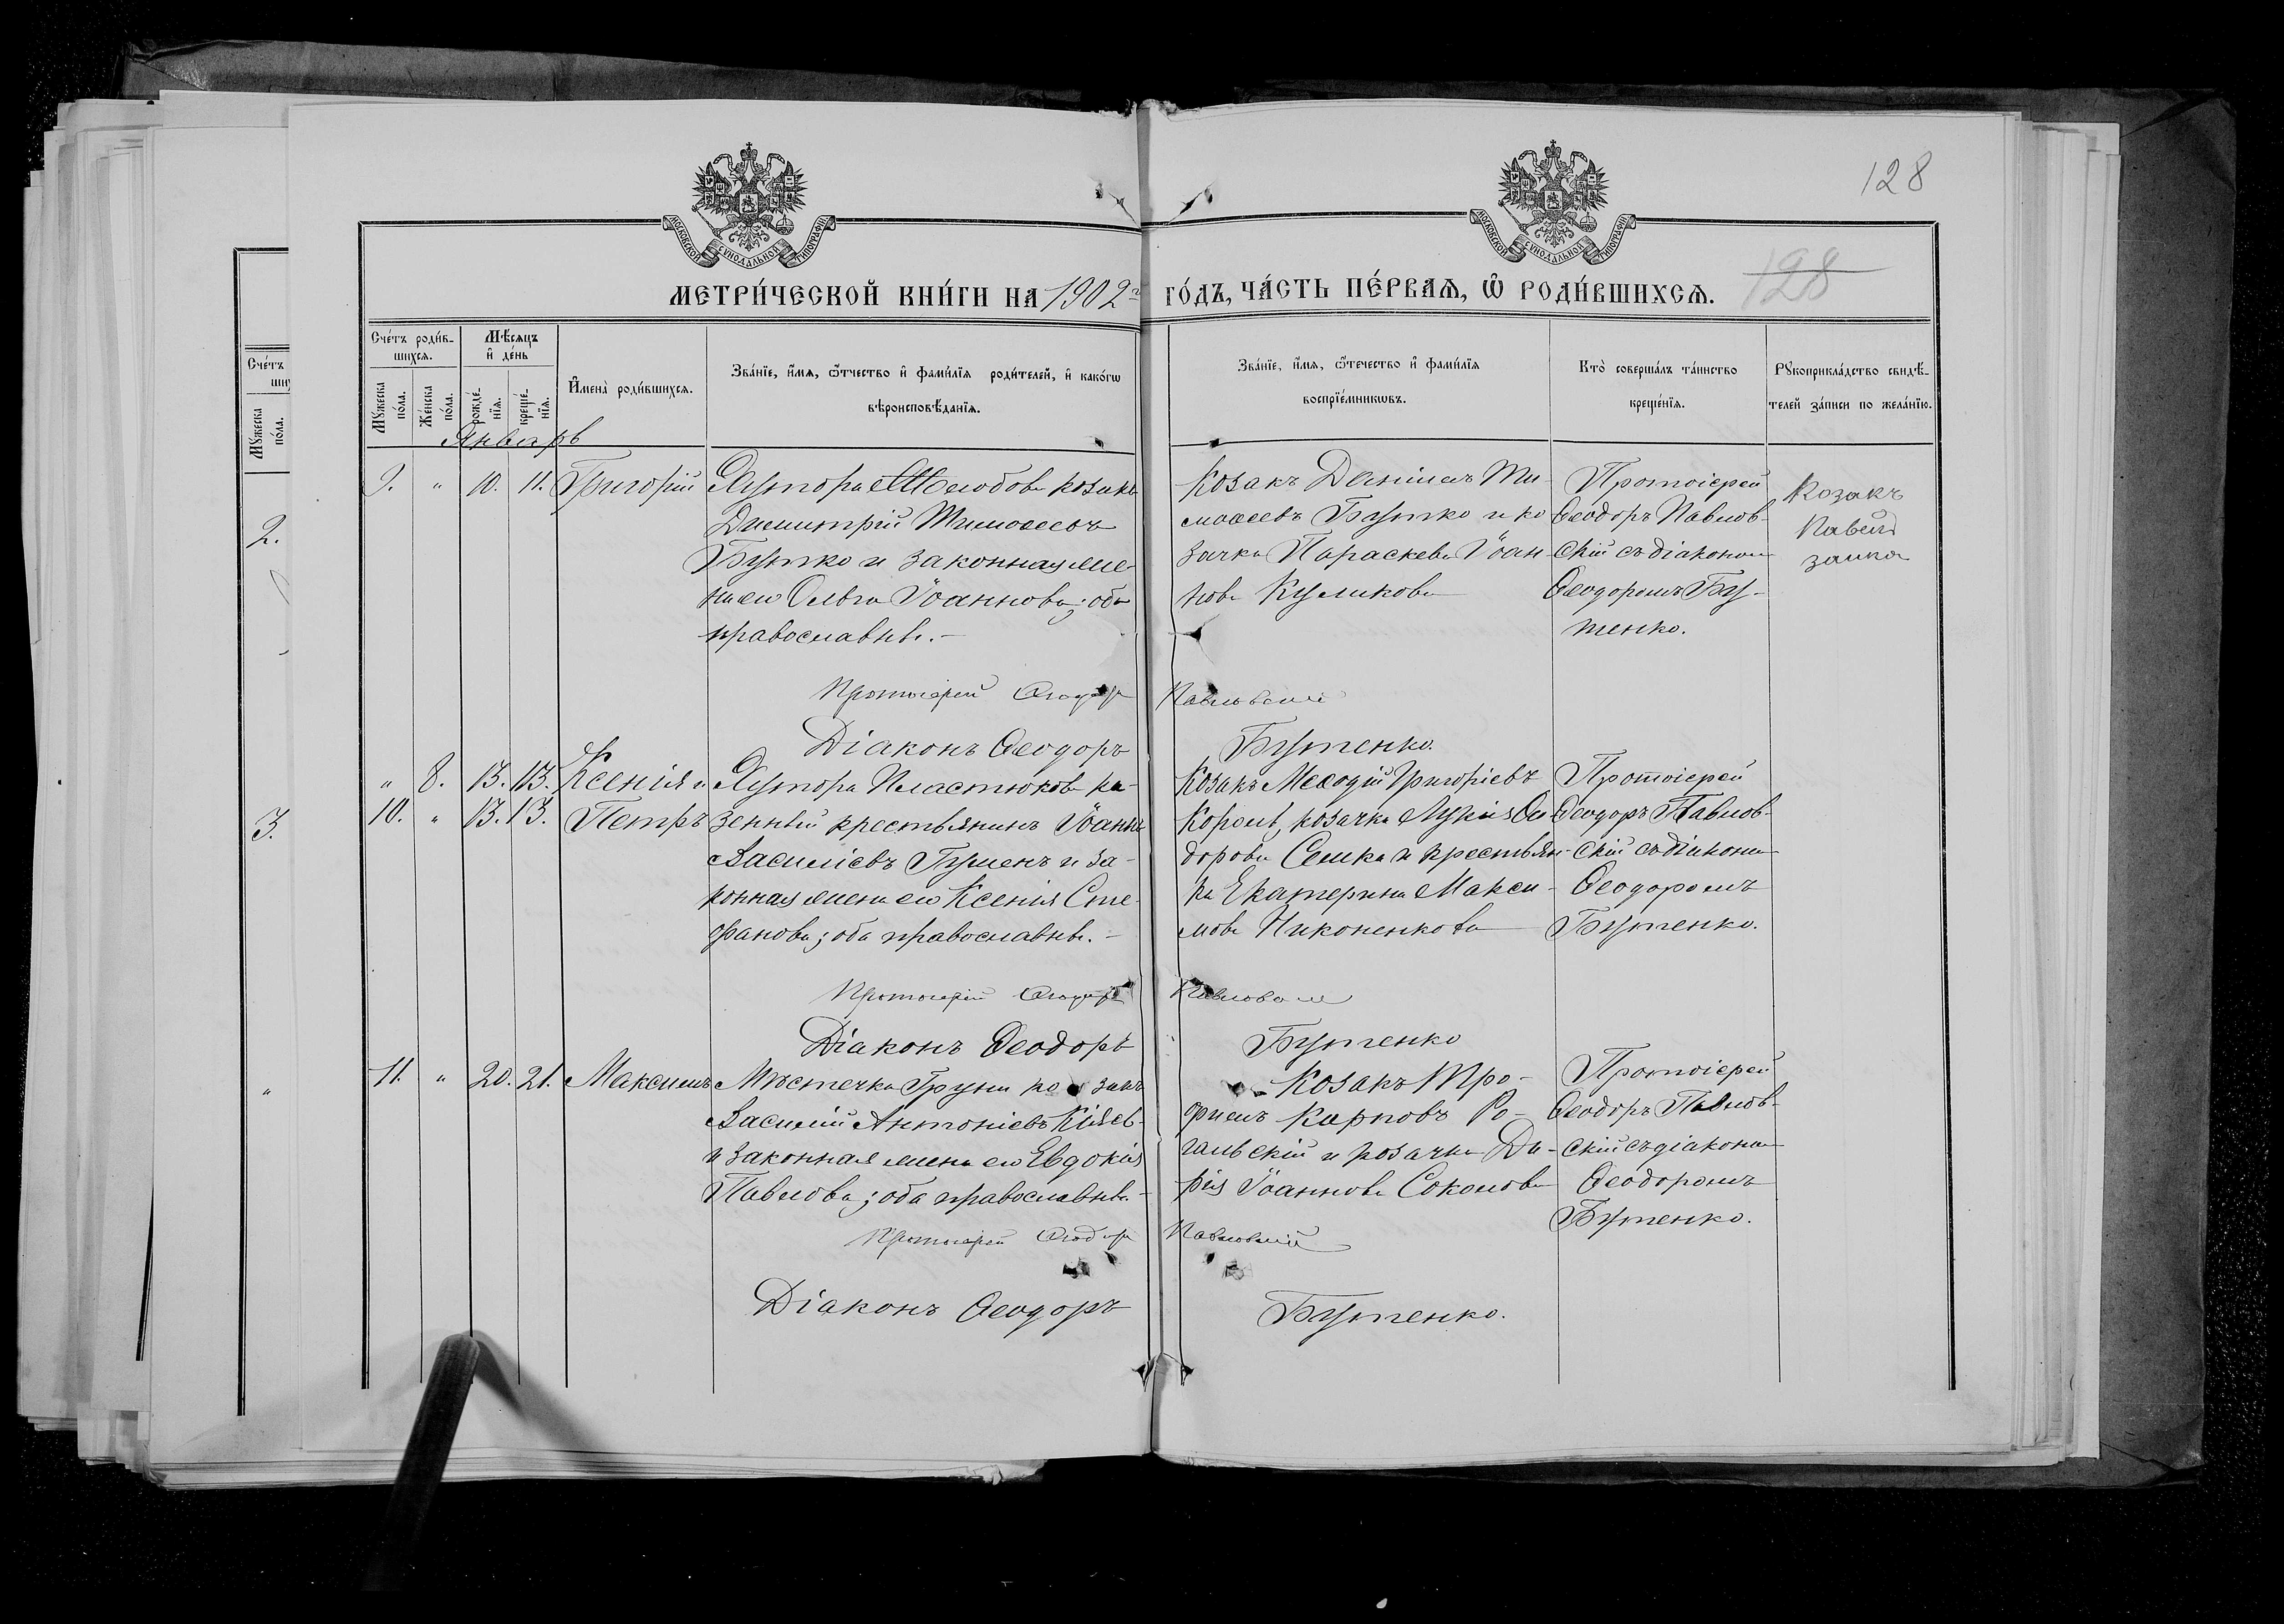 128
128
МОСКОВСКОЙ СѴНОДАЛЬНОЙ ТИПОГРАФІИ
МОСКОВСКОЙ СѴНОДАЛЬНОЙ ТИПОГРАФІИ
МЕТРИ́ЧЕСКОЙ КНИ́ГИ НА 1902й ГО́ДЪ, ЧА́СТЬ ПЕ́РВАЯ, Ѿ РОДИ́ВШИХСЯ.
Сче́тъ роди́в-
шихся.
Му́жеска по́ла.
Же́нска по́ла.
Мѣ́сяцъ
и де́нь
рожде́-
нія.
креще́-
нія.
И҆мена̀ роди́вшихся.
Зва́нїе, и҆́мя, ѻ҆́тчество и҆ фами́лїя роди́телей, и҆ како́гѡ
вѣроисповѣ́данїя.
Зва́нїе, и҆́мя, ѻ҆те́чество и҆ фами́лїя
воспрїе́мникѡвъ.
Кто̀ соверша́лъ та́инство
креще́нїя.
Рꙋкоприкла́дство свидѣ́-
телей за́писи по жела́нїю.
Счетъ
ши
Мужеска
пола.
2.
3.
"
Январь
9. " 10. 11. Григорій
Хутора козакъ
Димитрій Тимоѳеевъ
Бутко и законная же-
на его Ольга Іоаннова; оба
православны.-
Козакъ Даніилъ Ти-
моѳеевъ Бутко и ко
зачка Параскева Іоан-
нова Куликова
Протоіерей
Ѳеодоръ Павлов-
скій съ діакономъ
Ѳеодоромъ Бу-
тенко.
Козакъ
Павелъ
заика
Протоіерей Ѳеодоръ Павловскій
Діаконъ Ѳеодоръ Бутенко.
" 8. 13. 13. Ксенія и
10. " 13. 13. Петръ
Хутора Пластюкова ка-
зенный крестьянинъ Іоаннъ
Василіевъ Гуменъ и за-
конная жена его Ксенія Сте-
фанова; оба православны.-
Козакъ Меѳодій Григоріевъ
Король, козачка Лукія Ѳео-
дорова Сешка и крестьян-
ка Екатерина Макси-
мова Никоненкова
Протоіерей
Ѳеодоръ Павлов-
скій съ діакономъ
Ѳеодоромъ
Бутенко.
Протоіерей Ѳеодоръ Павловскій
Діаконъ Ѳеодоръ Бутенко
11. " 20. 21. Максимъ
Мѣстечка Груни козакъ
Василій Антоніевъ
и законная жена его Евдокія
Павлова; оба православны-
Козакъ Тро-
фимъ Карповъ Ро-
гальскій и козачка Да-
рія Іоаннова Соколова
Протоіерей
Ѳеодоръ Павлов-
скій съ діакономъ
Ѳеодоромъ
Бутенко.
Протоіерей Ѳеодоръ Павловскій
Діаконъ Ѳеодоръ Бутенко.